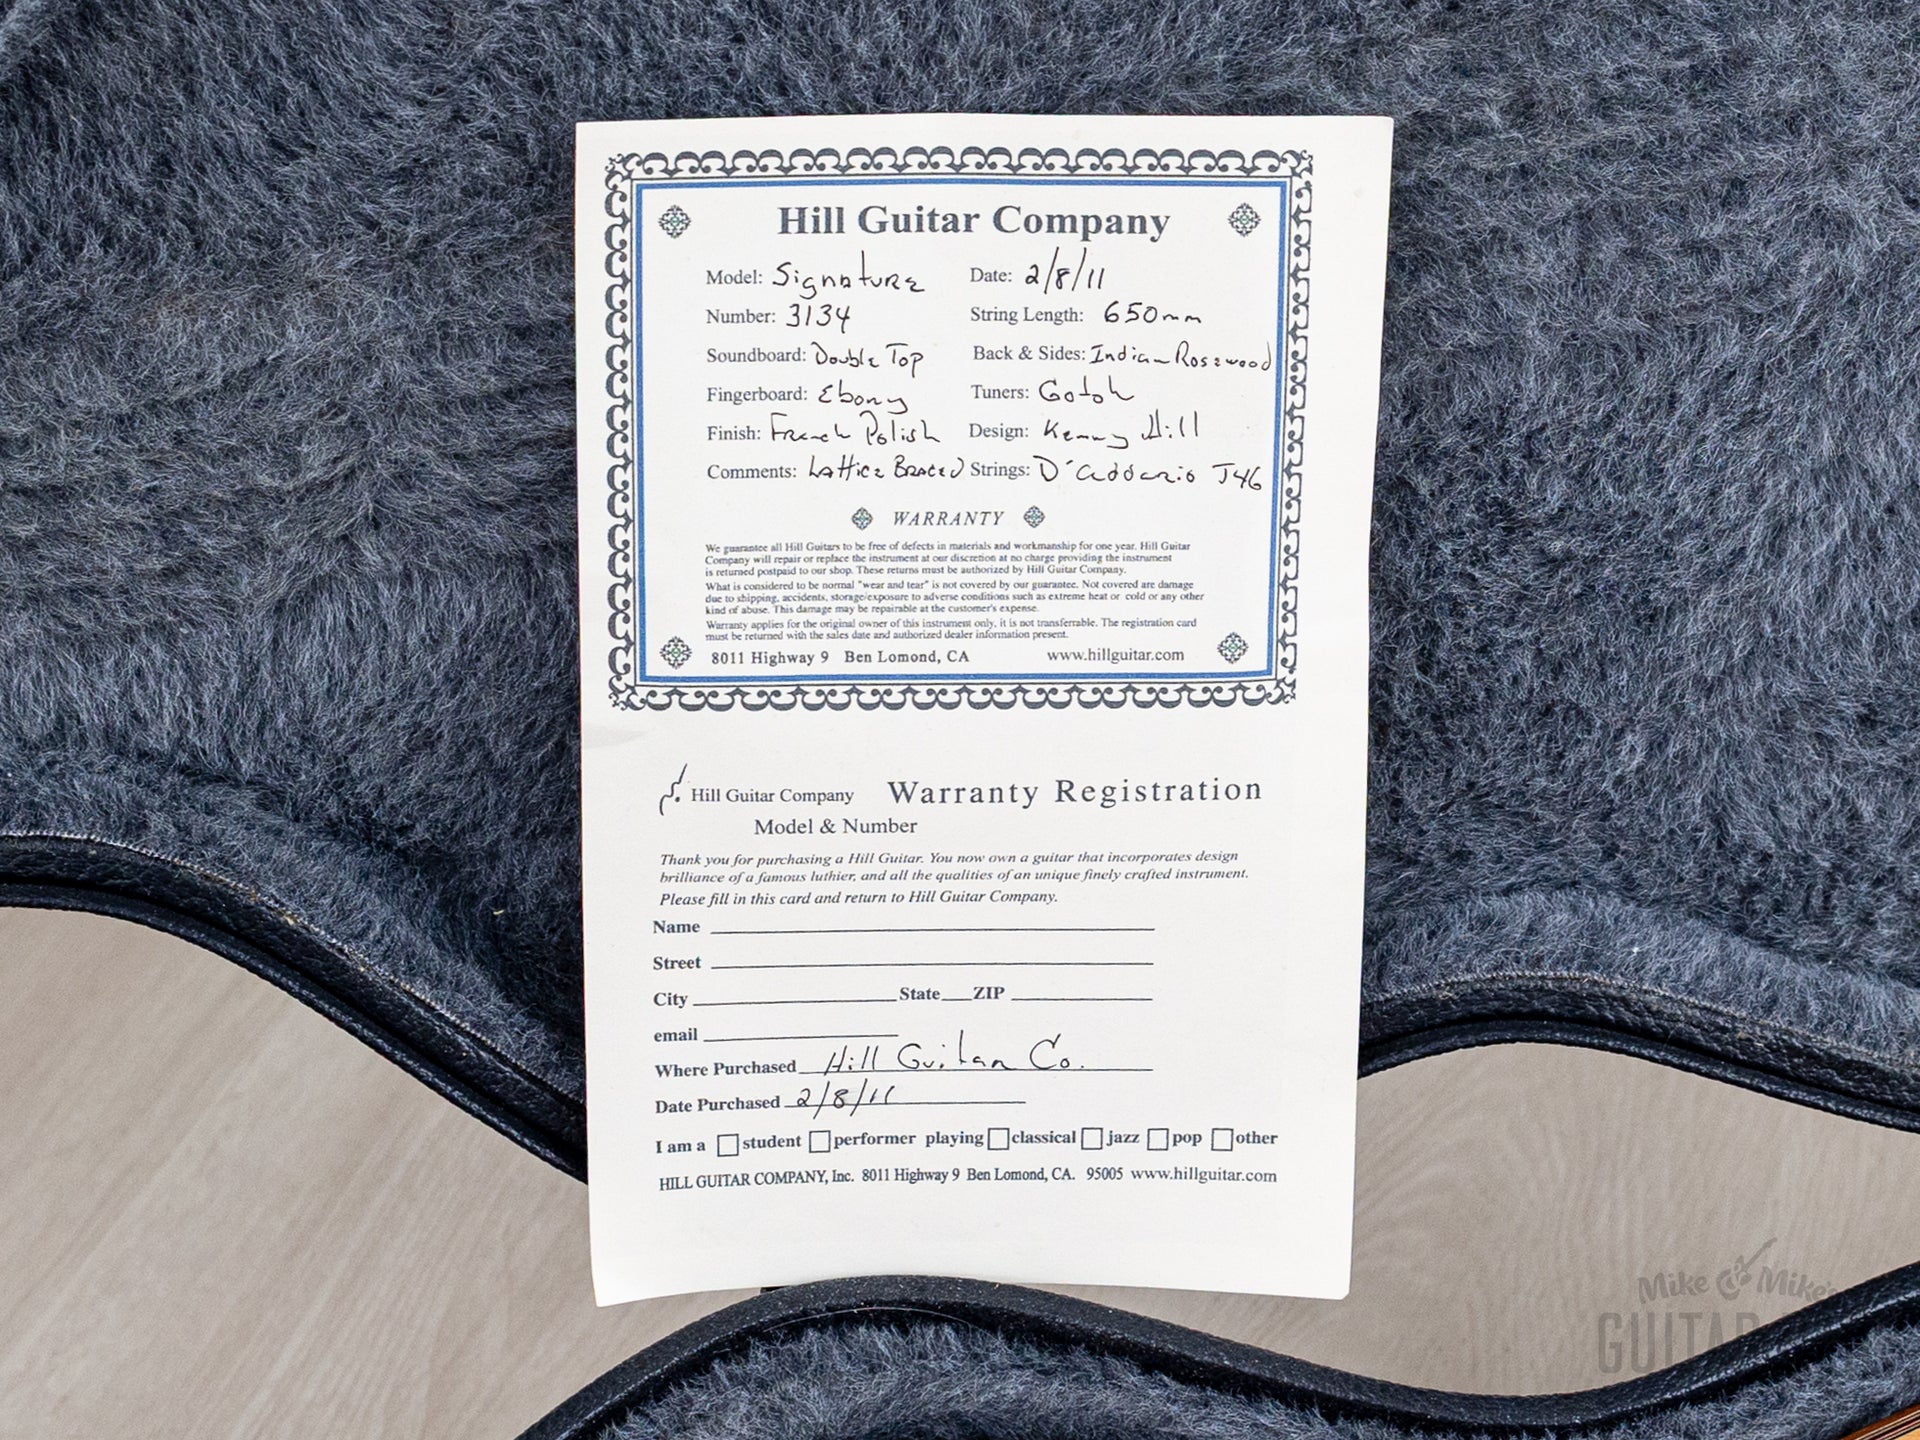 Hill Guitar Company
Model: Signature Date: 2/8/11
Number: 3134 String Length: 650mm
Soundboard: Double Top Back & Sides: Indian Rosewood
Fingerboard: Ebony Tuners: Gotoh
Finish: French Polish Design: Kenny Hill
Comments: Lattice Braced Strings: D'addario J46
WARRANTY
We guarantee all Hill Guitars to be free of defects in materials and workmanship for one year. Hill Guitar
Company will repair or replace the instrument at our discretion at no charge providing the instrument
is returned postpaid to our shop. These returns must be authorized by Hill Guitar Company.
What is considered to be normal "wear and tear" is not covered by our guarantee. Not covered are damage
due to shipping, accidents, storage/exposure to adverse conditions such as extreme heat or cold or any other
kind of abuse. This damage may be repairable at the customer's expense.
Warranty applies for the original owner of this instrument only, it is not transferrable. The registration card
must be returned with the sales date and authorized dealer information present.
8011 Highway 9 Ben Lomond, CA www.hillguitar.com
Hill Guitar Company Warranty Registration
Model & Number
Thank you for purchasing a Hill Guitar. You now own a guitar that incorporates design
brilliance of a famous luthier, and all the qualities of an unique finely crafted instrument.
Please fill in this card and return to Hill Guitar Company.
Name
Street
City State ZIP
email
Where Purchased Hill Guitar Co.
Date Purchased 2/8/11
I am a student performer playing classical jazz pop other
HILL GUITAR COMPANY, Inc. 8011 Highway 9 Ben Lomond, CA. 95005 www.hillguitar.com
Mike & Mike's
GUITAR